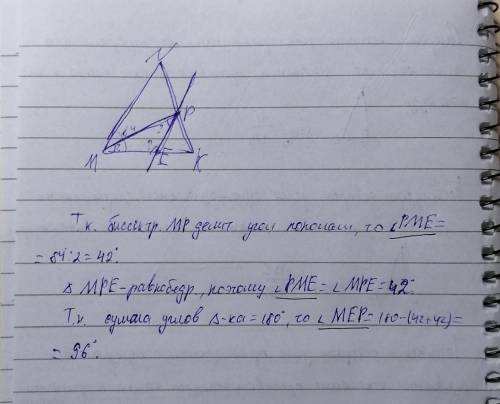 N
P
M E K
Т.к. биссектр. MP делит угол пополам, то ∠PME =
= 84:2 = 42°.
Δ MPE - равнобедр., поэтому ∠PME = ∠MPE = 42°.
Т.к. сумма углов Δ-ка = 180°, то ∠MEP = 180-(42+42) =
= 96°.